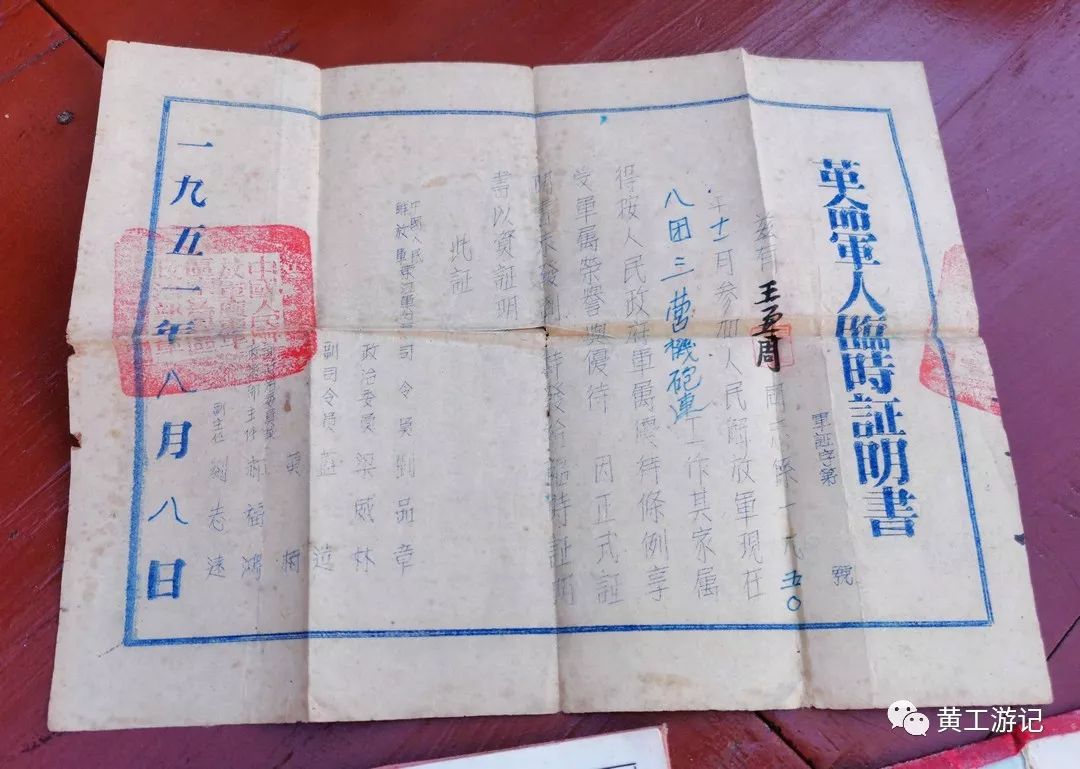 革命軍人臨時証明書
軍証字第 號
茲有王 周同志係一九五〇
年十一月參加人民解放軍現在
八团三营機砲連工作其家属
得按人民政府軍属優待條例享
受軍属榮譽與優待 因正式証
明書未發到特發給臨時証明
書以資証明
此証
中國人民
解放軍 軍分區司令員劉品章
政治委員梁威林
副司令員
主任 福鴻
副主任劉志遠
一九五一年八月八日
黄工游记